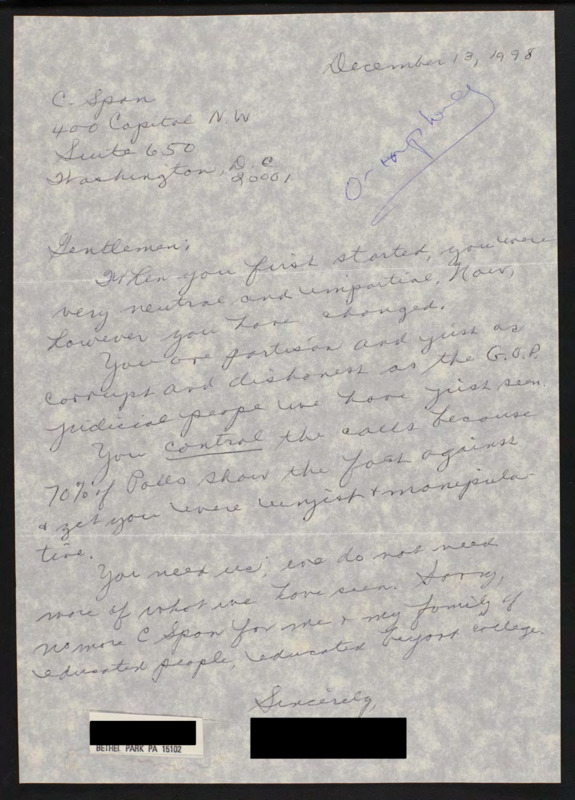 December 13, 1998
C- Span
400 Capitol N.W
Suite 650
Washington, D.C
20001
Gentlemen:
When you first started, you were
very neutral and impartial. Now,
however you have changed.
You are partisan and just as
corrupt and dishonest as the G.O.P.
judicial people we have just seen.
You control the calls because
70% of Polls show the fact against
& yet you were unjust & manipula-
tive.
You need us; we do not need
more of what we have seen. Sorry,
no more C Span for me & my family of
educated people, educated beyond college.
Sincerely,
BETHEL PARK PA 15102